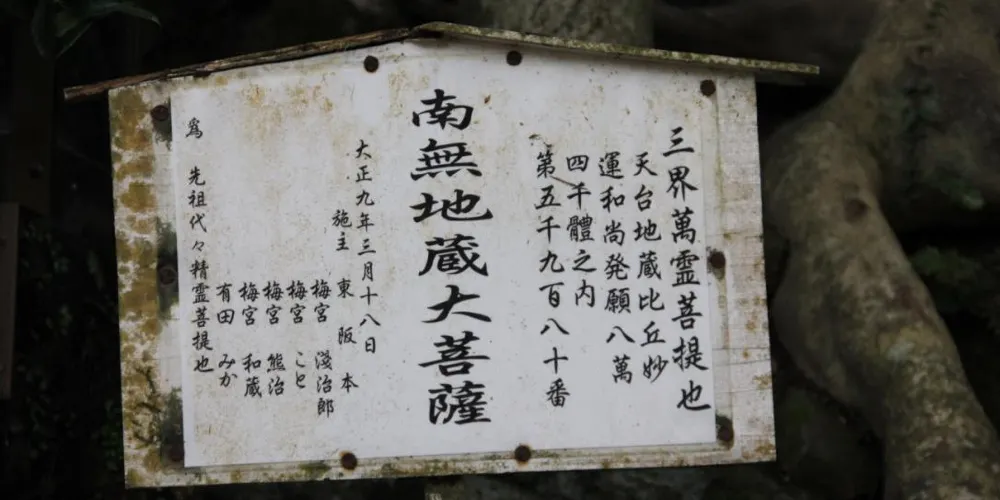 三界萬霊菩提也
天台地蔵比丘妙
運和尚発願八萬
四千體之内
第五千九百八十番
南無地蔵大菩薩
大正九年三月十八日
施主 東阪本
梅宮 淺治郎
梅宮 こと
梅宮 熊治
梅宮 和蔵
有田 みか
爲 先祖代々精霊菩提也